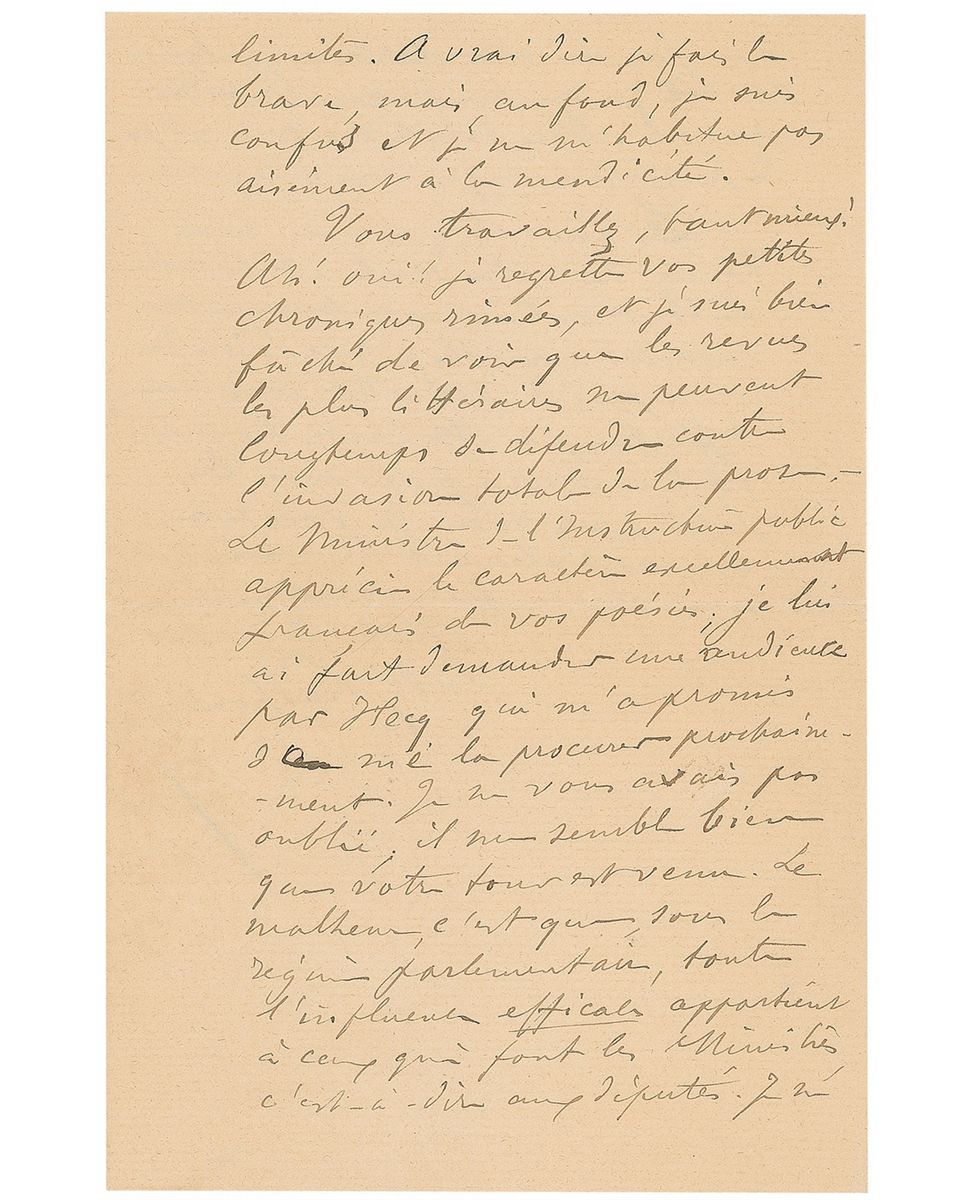 limites. A vrai dire je fais le
brave, mais, au fond, je suis
confus et je ne m'habitue pas
aisément à la mendicité.
Vous travaillez, tant mieux!
Ah! oui! je regrette vos petites
chroniques rimées, et je suis bien
fâché de voir que les revues
les plus littéraires ne peuvent
longtemps se défendre contre
l'invasion totale de la prose. -
Le Ministre de l'Instruction public
apprécie le caractère excellemment
français de vos poésies; je lui
ai fait demander une
par Hecq qui m'a promis
de me la procurer prochaine-
-ment. Je ne vous avais pas
oublié; il me semble bien
que votre tour est venu. Le
malheur, c'est que, sous le
régime parlementaire, toute
l'influence efficace appartient
à ceux qui font les Ministres
c'est-à-dire aux députés. Je ne